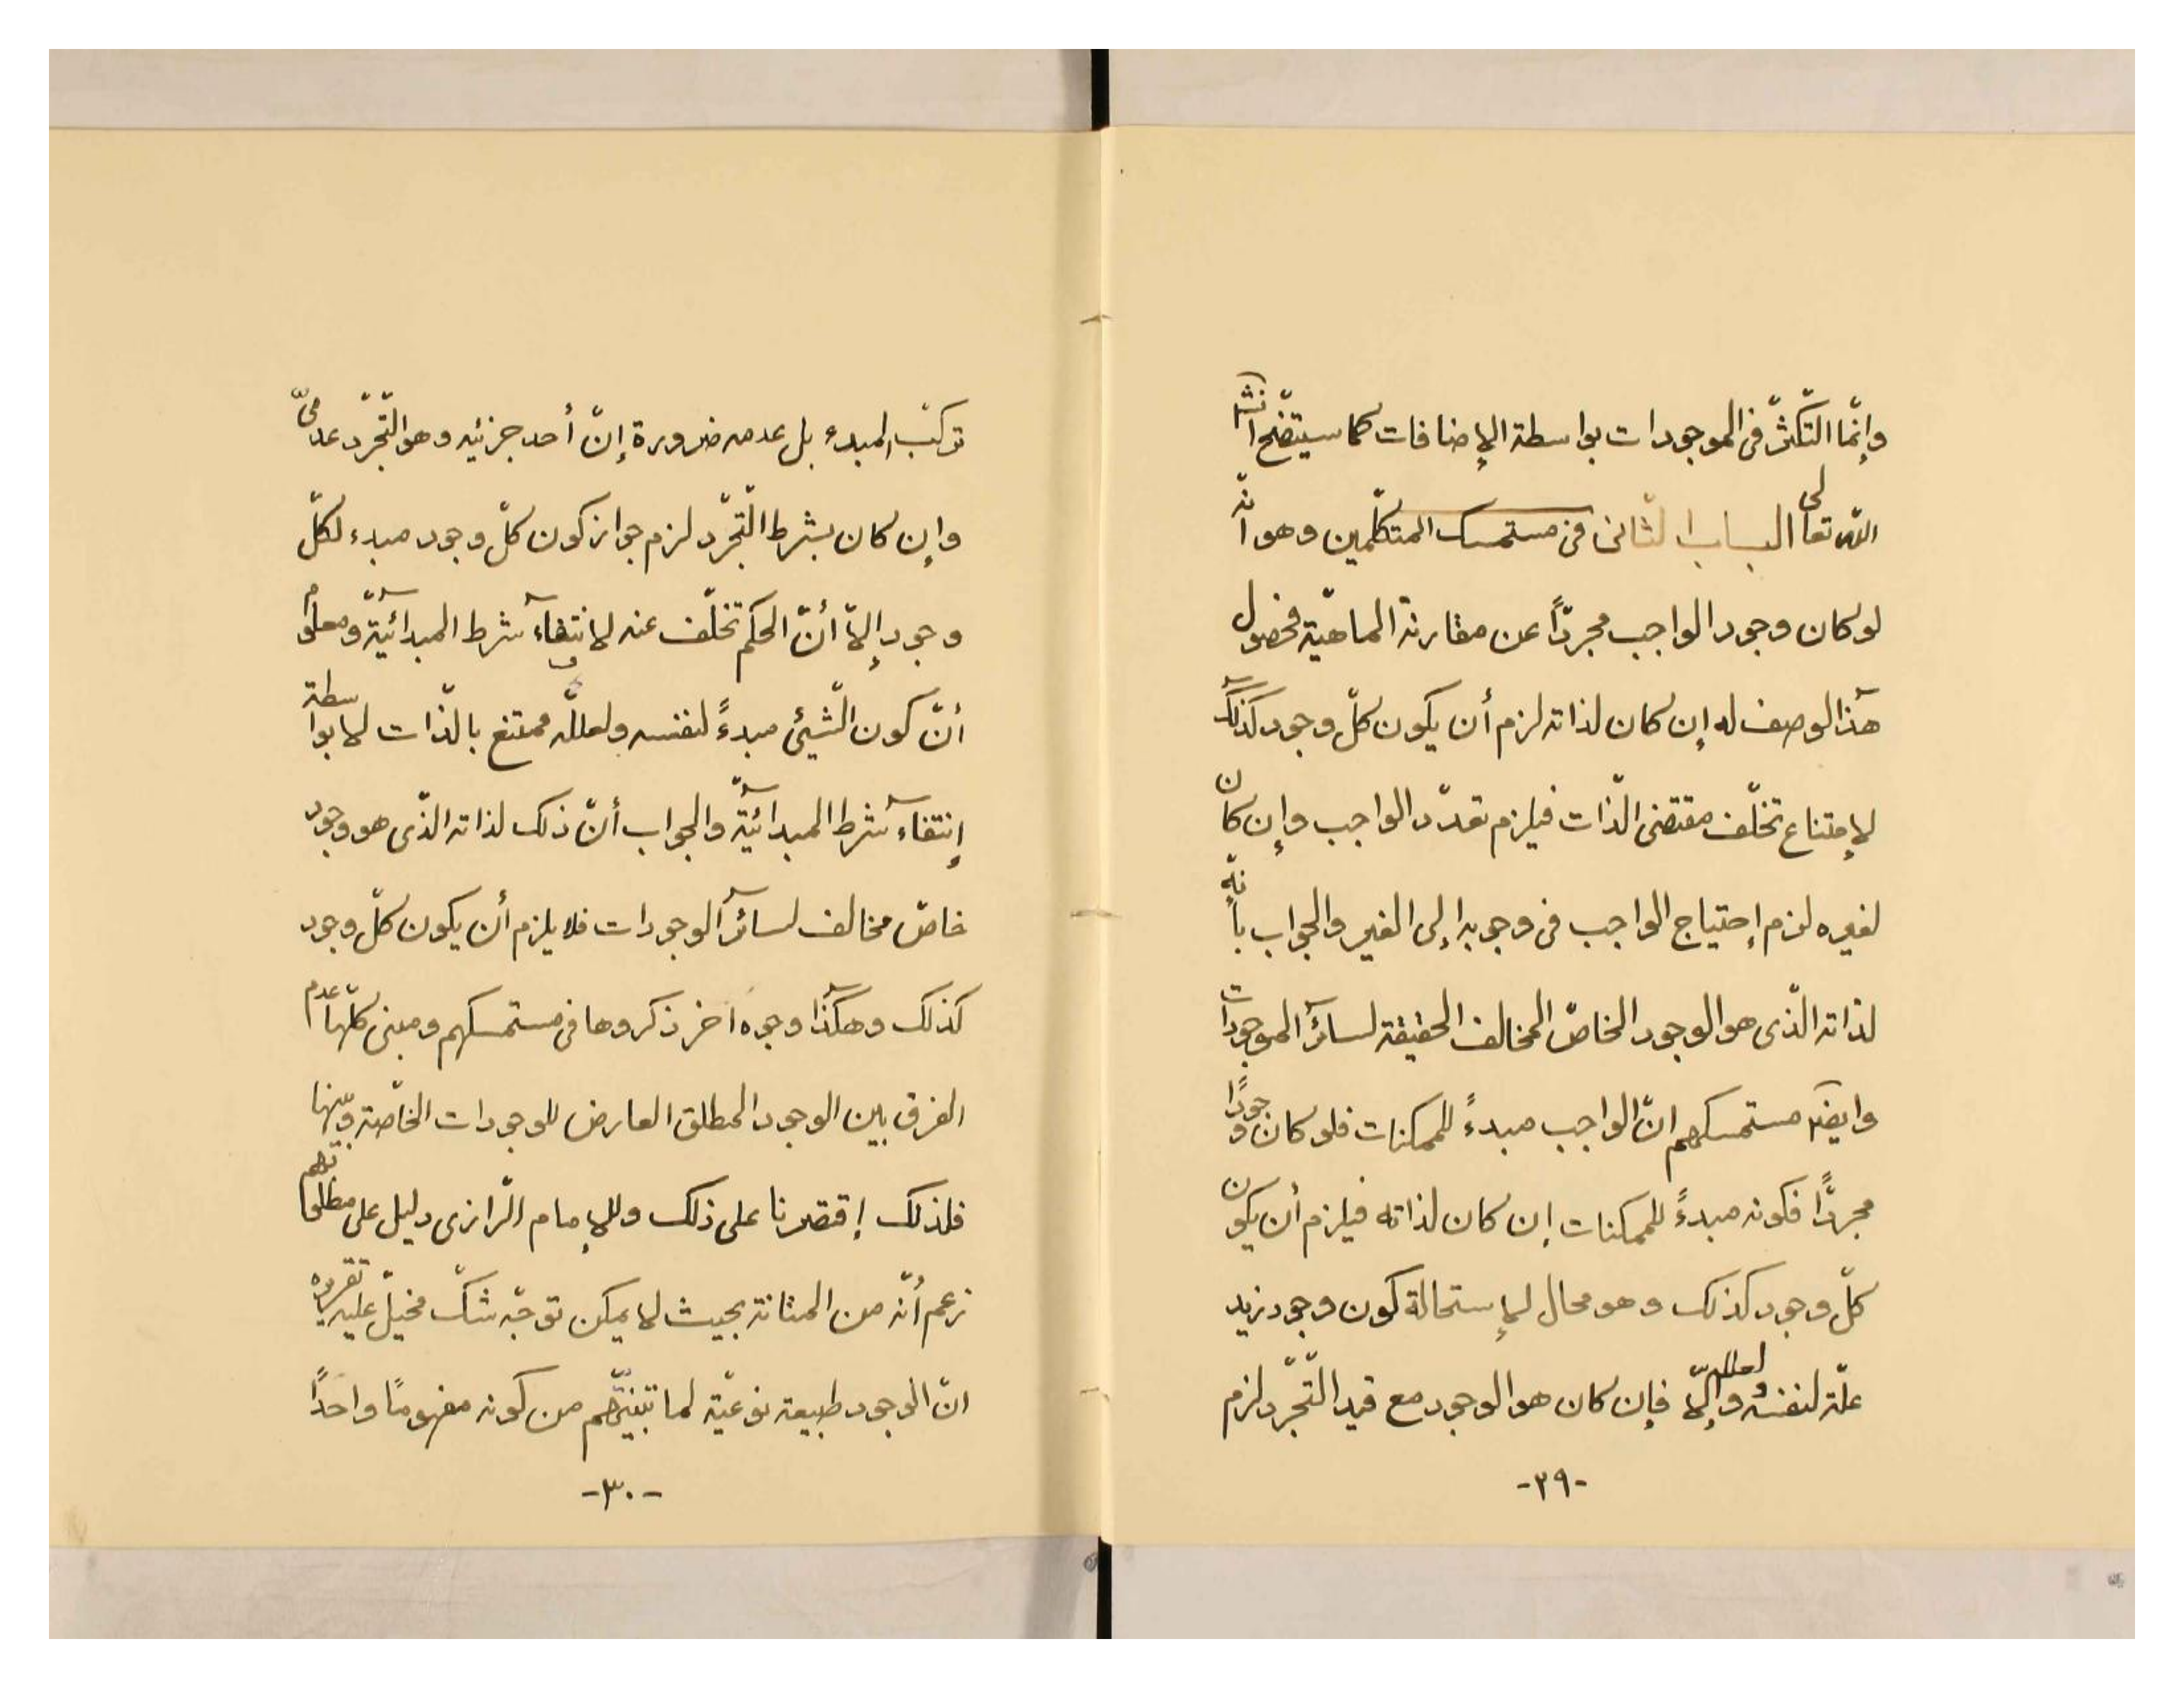 وإنّما التّكثّر فى الموجودات بواسطة الإضافات كما سيتضّح انشآ
اللّه تعالى الباب الثّانى فى مستمسك المتكلّمين وهو انّه
لو كان وجود الواجب مجردّاً عن مقارنة الماهيّة فحصول
هذآ الوصف له إن كان لذاته لزم أن يكون كلّ وجود كذلك
لإمتناع تخلّف مقتضى الذّات فيلزم تعدّد الواجب وإن كان
لغيره لزم إحتياج الواجب فى وجوبه إلى الغير والجواب بأنّه
لذاته الّذى هو الوجود الخاصّ المخالف الحقيقة لسائر الموجودات
وايضًا مستمسكهم انّ الواجب مبدءً للممكنات فلو كان وجودًا
مجردًّا فكونه مبدءً للممكنات إن كان لذاته فيلزم أن يكون
كلّ وجود كذلك وهو محال لإستحالة كون وجود زيد
علّة لنفسه ولعلله وإلّا فإن كان هو الوجود مع قيد التّجرّد لزم
-٢٩-
تركّب المبدء بل عدمه ضرورة إنّ أحد جزئيه وهو التّجرّد عدمىّ
وإن كان بشرط التّجرّد لزم جواز كون كلّ وجود مبدء لكلّ
وجود إلاّ أنّ الحكم تخلّف عنه لانتفآء شرط المبدائيّة ومعلوم
أنّ كون الشّيئ مبدءً لنفسه ولعلله ممتنع بالذّات لا بواسطة
إنتفآء شرط المبدائيّة والجواب أنّ ذلك لذاته الذّى هو وجود
خاصّ مخالف لسائر الوجودات فلا يلزم أن يكون كلّ وجود
كذلك وهكذا وجوه اخر ذكروها فى مستمسكهم ومبنى كلّها عدم
الفرق بين الوجود المطلق العارض للوجودات الخاصّة وبينها
فلذلك إقتصرنا على ذلك وللإمام الرّازى دليل على مطلوبهم
زعم أنّه من المتانة بحيث لا يمكن توجّه شكّ مخيّل عليه تقريره
انّ الوجود طبيعة نوعيّة لما من كونه مفهومًا واحدًا
-٣٠-